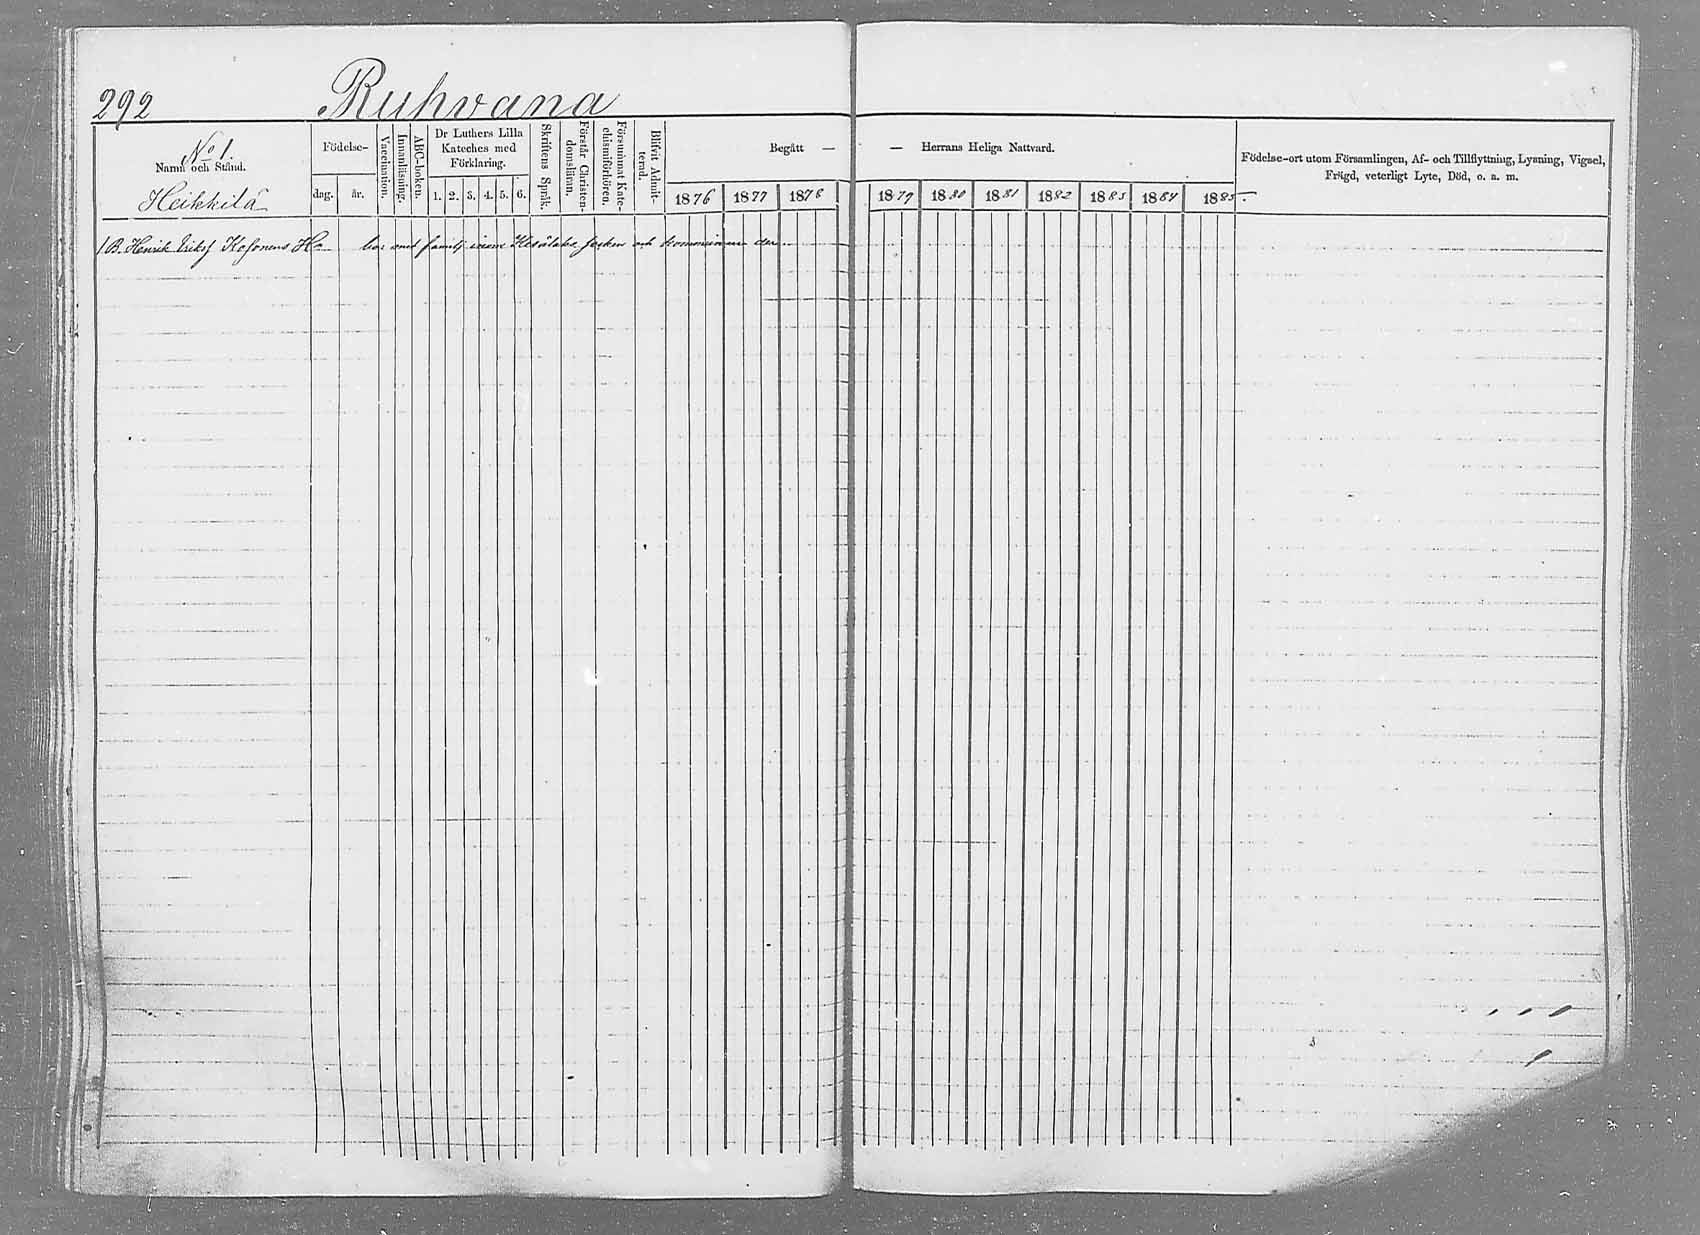 292 Ruhvana
No 1.
Namn och Stånd.
Heikkilä
Födelse-
dag. år.
Vaccination.
Innanläsning.
ABC-boken.
Dr Luthers Lilla
Kateches med
Förklaring.
1. 2. 3. 4. 5. 6.
Skriftens Språk.
Förstår Christen-
domsläran.
Försummat Kate-
chismiförhören.
Blifvit Admit-
terad.
Begått — — Herrans Heliga Nattvard.
1876 1877 1878 1879 1880 1881 1882 1883 1884 1885
Födelse-ort utom Församlingen, Af- och Tillflyttning, Lysning, Vigsel,
Frägd, veterligt Lyte, Död, o. a. m.
1 B. Henrik Eriksf Kosonens bor med familj inom Kesälaks socken och der